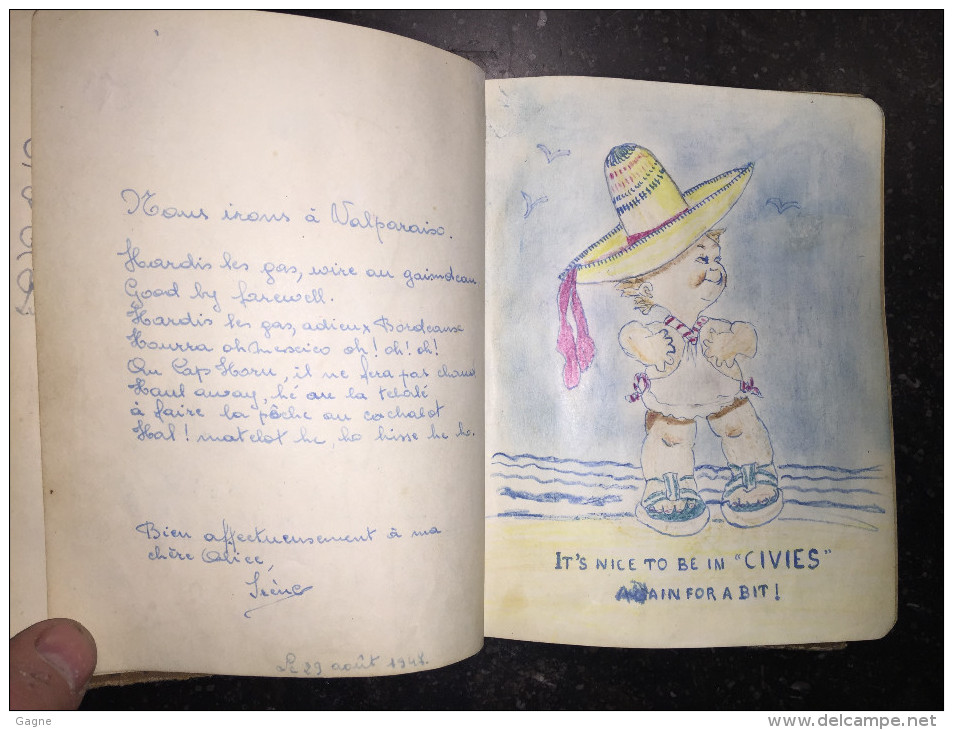 Nous irons à Valparaiso.
Hardis les gas, vire au gaindeau
Good by farewell.
Hardis les gas, adieux Bordeaux
Hourra oh Mexico oh! oh! oh!
Au Cap Horn, il ne fera pas chaud
Haul away, hé ou la tchalé
à faire la pêche au cachalot
Hal! matelot he, ho hisse he ho.
Bien affectueusement à ma
chère Alice,
Irène
Le 29 août 1947.
IT'S NICE TO BE IN "CIVIES"
AGAIN FOR A BIT!
Gagne
www.delcampe.net